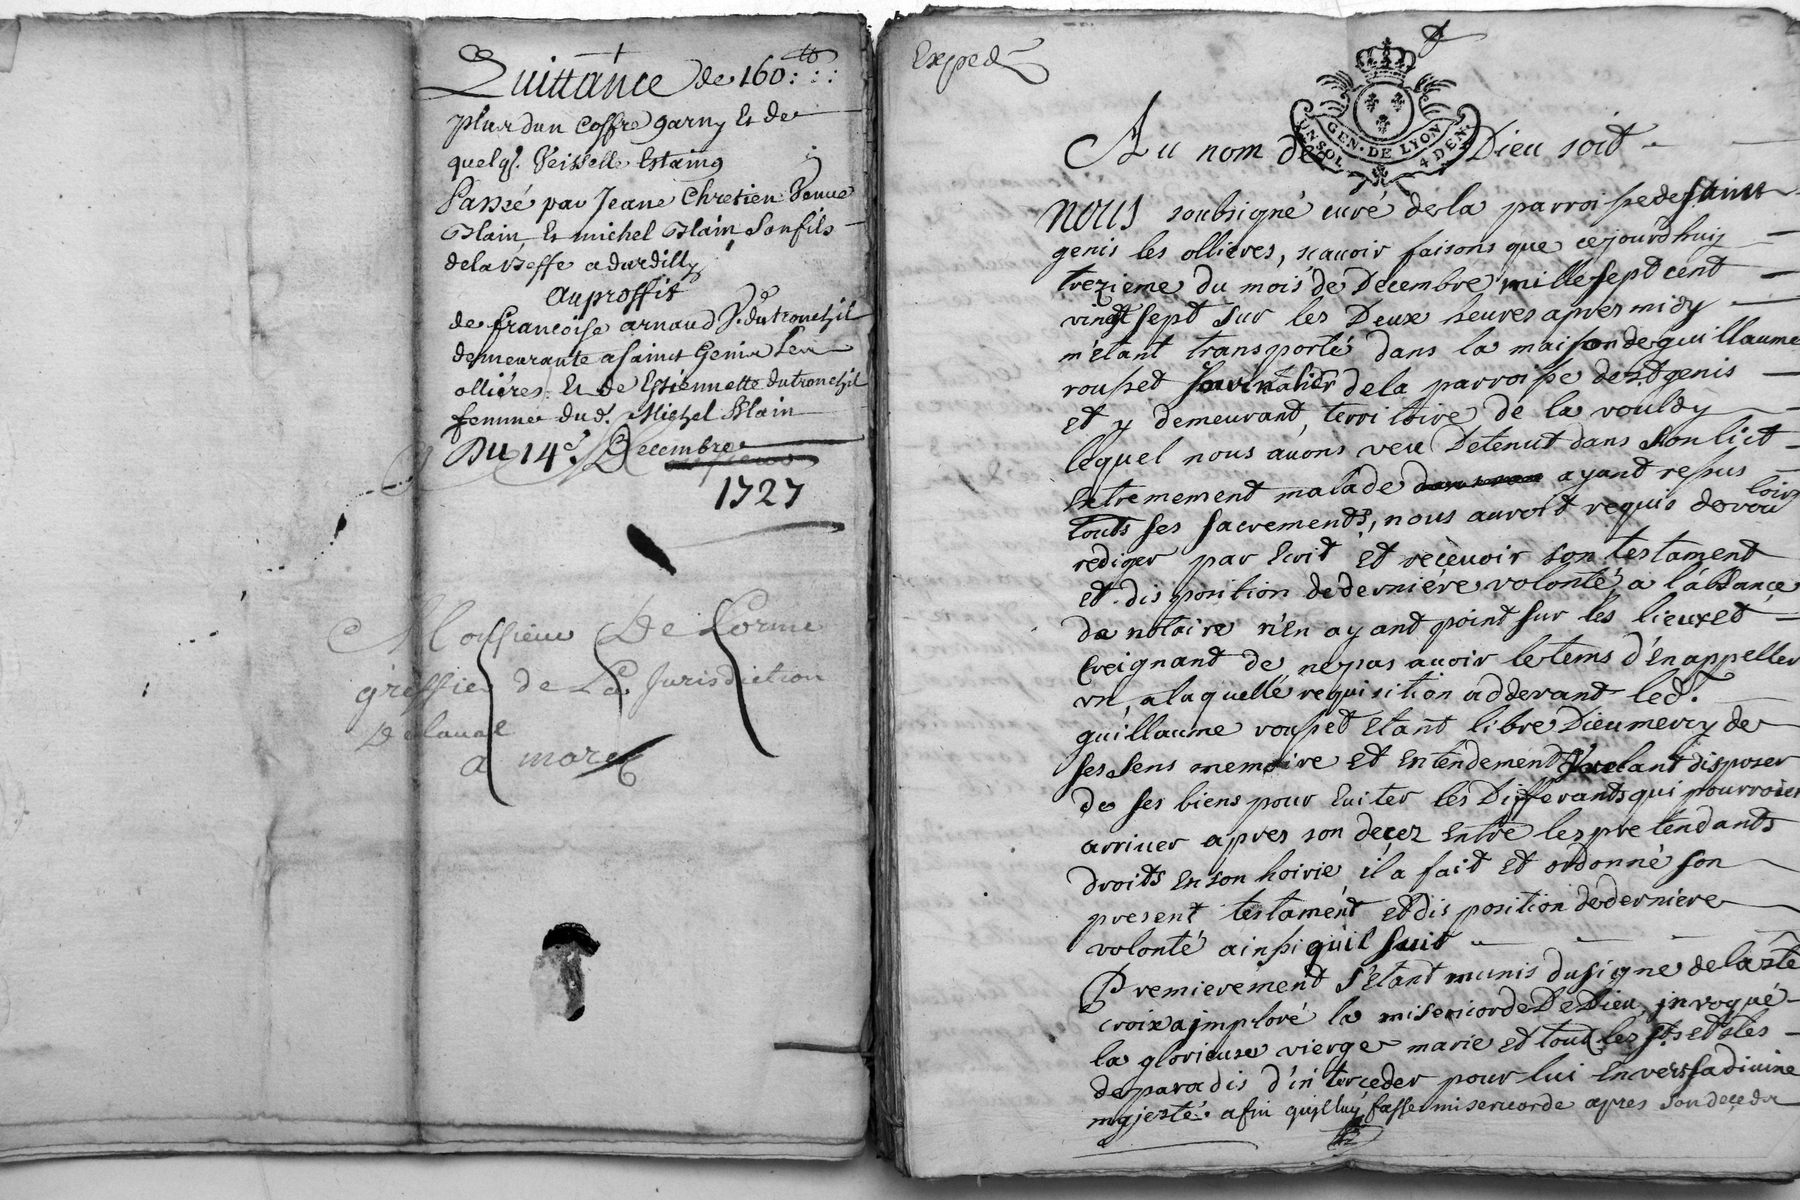 Quittance de 160:tt
plus dun Coffre garny et de
quelqs. Veisselle Estaing
Passé par Jeane Chretien Veuve
Blain et michel Blain son fils
de la Beffe a dardilly
au proffit
de francoise arnaud Ve. dutronchil
demeurante a sainct Genis Les
ollières. et de Estiennette dutronchil
femme dud. Michel Blain
Du 14e. Decembre
1727
Monsieur De Lorme
greffier de La Jurisdiction
Delaval
a marcy
Exped
GEN. DE LYON
UN SOL 4 DEN.
Au nom de Dieu soit
nous soubsigné curé de la parroisse de saint
genis les ollieres, scavoir faisons que cejourdhuy
trezieme du mois de Decembre mille sept cent
vingt sept sur les Deux heures apres midy
m'étant transporté dans la maison de guillaume
rousset Journalier de la parroisse de st genis
et y demeurant, territoire de la vouldy
lequel nous avons veu Detenut dans son lict
extremement malade ayant resus
touts ses sacrements, nous auroit requis de vouloir
rediger par Ecrit et recevoir son testament
et disposition de derniére volonté a l'absance
de notaire n'en ayant point sur les lieux et
creignant de ne pas avoir le tems d'en appeller
un, a laquelle requisition adderant led.
guillaume rousset etant libre Dieu mercy de
ses sens memoire et entendement Voulant disposer
de ses biens pour Eviter les Differants qui pourroient
arriver apres son decez entre les pretendants
droits en son hoirie il a fait et ordonné son
present testament et disposition de derniere
volonté ainsi qu'il suit
Premierement s'étant munis du signe de la ste
croix a imploré la misericorde De Dieu, invoqué
la glorieuse vierge marie et tout les sts et stes
de paradis d'interceder pour lui envers sa divine
majesté. afin quil luy fasse misericorde apres son decedz